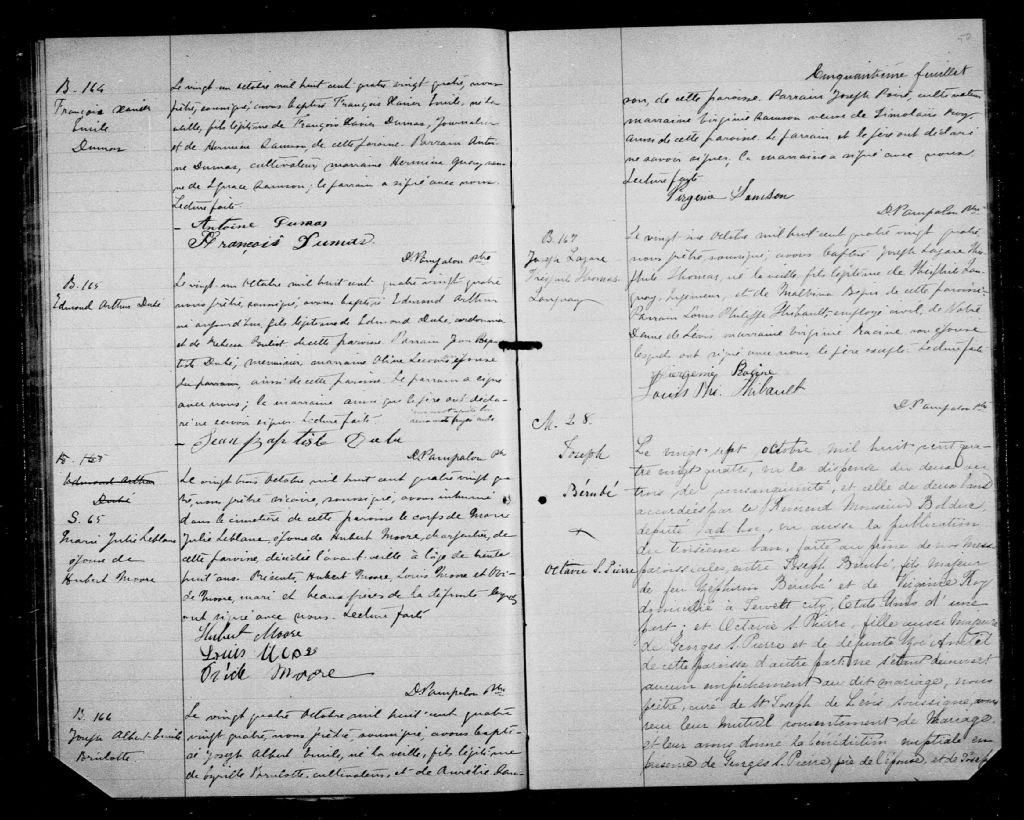 B. 164
François Xavier
Emile
Dumas
Le vingt un octobre mil huit cent quatre vingt quatre, nous
prêtre, soussigné, avons baptisé François Xavier Emile, né la
veille, fils légitime de François Xavier Dumas, Journalier
et de Hermine Samson, de cette paroisse. Parrain Antoi-
ne Dumas, cultivateur, marraine Hermine
de Ignace Samson; le parrain a signé avec nous.
Lecture faite
Antoine Dumas
François Dumas
D. Pampalon Ptre
B. 165
Edmond Arthur Dubé
Le vingt un Octobre mil huit cent quatre vingt quatre
nous prêtre, soussigné, avons baptisé Edmond Arthur
né aujourd'hui, fils légitime de Edmond Dubé, cordonnier
et de Rebecca Bouliot de cette paroisse. Parrain Jean Bap-
tiste Dubé, menuisier, marraine Olive Lecomte, épouse
du parrain, aussi de cette paroisse. Le parrain a signé
avec nous; la marraine ainsi que le père ont décla-
ré ne savoir signer. Lecture faite
Jean Baptiste Dube
D. Pampalon Ptre
Edmond Arthur
Dubé
S. 65
Marie Julie Leblanc
épouse de
Hubert Moore
Le vingt trois Octobre mil huit cent quatre vingt qua-
tre, nous prêtre vicaire, soussigné, avons inhumé
dans le cimetière de cette paroisse le corps de Marie
Julie Leblanc, épouse de Hubert Moore, charpentier, de
cette paroisse, décédée l'avant veille à l'âge de trente
huit ans. Présents, Hubert Moore, Louis Moore et Ovi-
de Moore, mari et beaux frères de la défunte lesquels
ont signé avec nous. Lecture faite
Hubert Moore
Louis Moore
Ovide Moore
D. Pampalon Ptre
B. 166
Joseph Albert Emile
Brulotte
Le vingt quatre Octobre mil huit cent quatre
vingt quatre, nous prêtre soussigné, avons bapti-
sé Joseph Albert Emile, né la veille, fils légitime
de Cyrille Brulotte, cultivateur, et de Aurélie Sam-
50
Cinquantième feuillet
son, de cette paroisse. Parrain Joseph Poiré, cultivateur
marraine Virginie Samson veuve de Roy
aussi de cette paroisse. Le parrain et le père ont déclaré
ne savoir signer, la marraine a signé avec nous
Lecture faite
Virgenia Samson
D. Pampalon Ptre
B. 167
Joseph Lazare
Thomas
Le vingt six Octobre mil huit cent quatre vingt quatre
nous prêtre, soussigné, avons baptisé Joseph Lazare Thé-
ophile Thomas, né la veille, fils légitime de Théophile
Ingénieur, et de Malvina de cette paroisse.
Parrain Louis Philippe Thibault employé civil, de Notre
Dame de Lévis, marraine Virginie Racine son épouse
lesquels ont signé avec nous, le père excepté. Lecture faite
Racine
Louis Phi. Thibault
D. Pampalon Ptre
M. 28.
Joseph
Bérubé
X
Octavie S. Pierre
Le vingt sept octobre mil huit cent qua-
tre vingt quatre, vu la dispense du deux au
trois de consanguinité, et celle de deux bans
accordées par le Révérend Monsieur Bolduc
député ad hoc, vu aussi la publication
du troisième ban, faite au prône de nos messes
paroissiales, entre Joseph Bérubé, fils majeur
de feu Zéphirin Bérubé et de Virginie Roy
domicilié à Jewett city, Etats Unis d'une
part; et Octavie S. Pierre, fille aussi majeure
de Georges S. Pierre et de défunte
de cette paroisse d'autre part: ne s'étant découvert
aucun empêchement au dit mariage, nous
prêtre, curé de St Joseph de Lévis soussigné, avons
reçu leur mutuel consentement de mariage
et leur avons donné la bénédiction nuptiale en
présence de Georges S. Pierre, père de l'épouse, et de Joseph